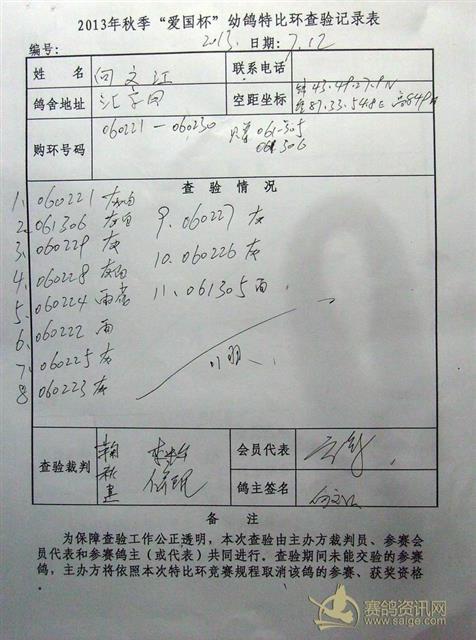 2013年秋季“爱国杯”幼鸽特比环查验记录表
编号： 2013. 日期：7.12
姓 名 何文江 联系电话
鸽舍地址 空距坐标 43.49.27.9N
87.33.54.8E 高849
购环号码 060221—060230 赠 061305
061306
查 验 情 况
1、060221 灰白
2、061306 灰白
3、060229 灰
4、060228 灰白
5、060224 雨
6、060222 雨
7、060225 灰
8 060223 灰
9、060227 灰
10、060226 灰
11、061305 雨
11羽
查验裁判 会员代表
鸽主签名 何文江
备 注
为保障查验工作公正透明，本次查验由主办方裁判员、参赛会
员代表和参赛鸽主（或代表）共同进行。查验期间未能交验的参赛
鸽，主办方将依照本次特比环竞赛规程取消该鸽的参赛、获奖资格
。
赛鸽资讯网
www.saige.com